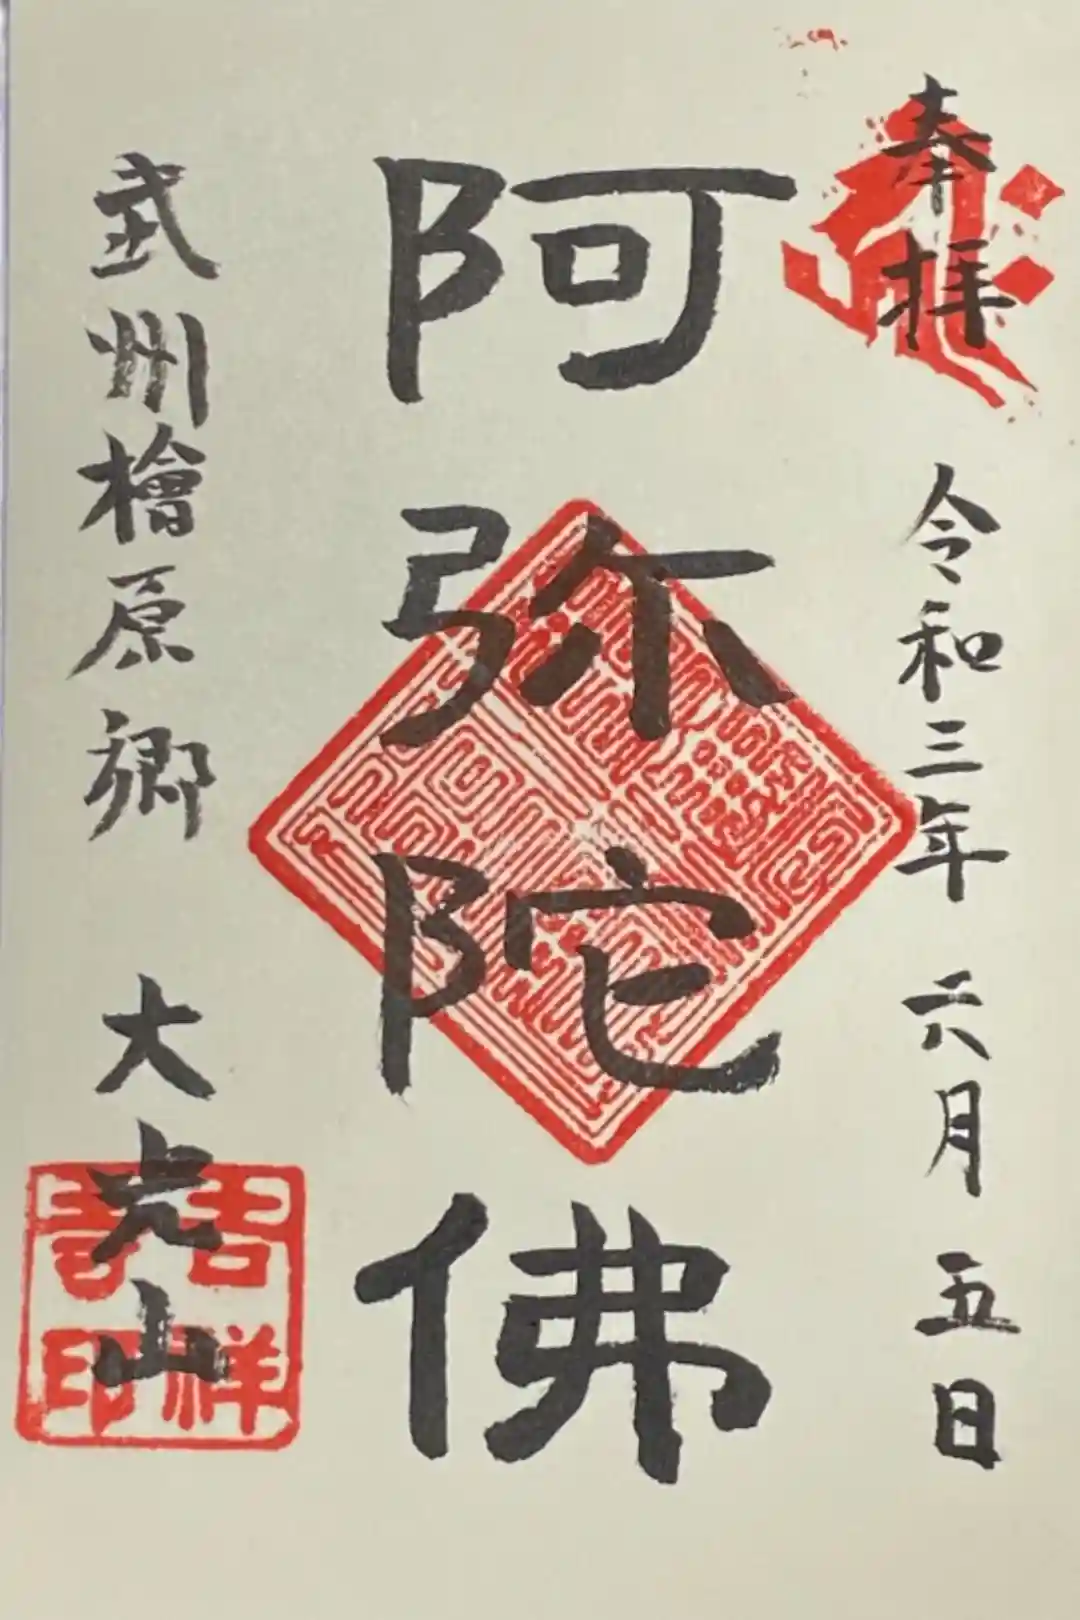 奉拝
令和三年 六月 五日
阿弥陀佛
武州檜原郷 大光山
吉祥
寺印